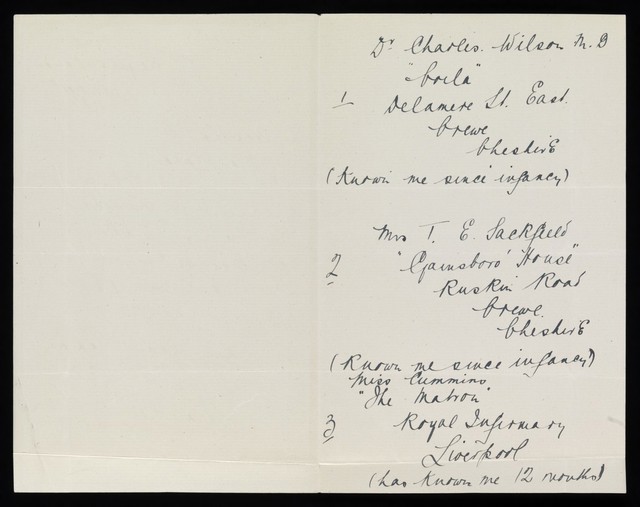 Dr Charles. Wilson M. D
"Coila"
1 Delamere St. East.
Crewe
Cheshire
(Known me since infancy)
Mrs T. E. Sackfield
2 "Gainsboro' House"
Ruskin Road
Crewe.
Cheshire
(Known me since infancy)
Miss Cummins
"The Matron"
3 Royal Infirmary
Liverpool
(has known me 12 months)